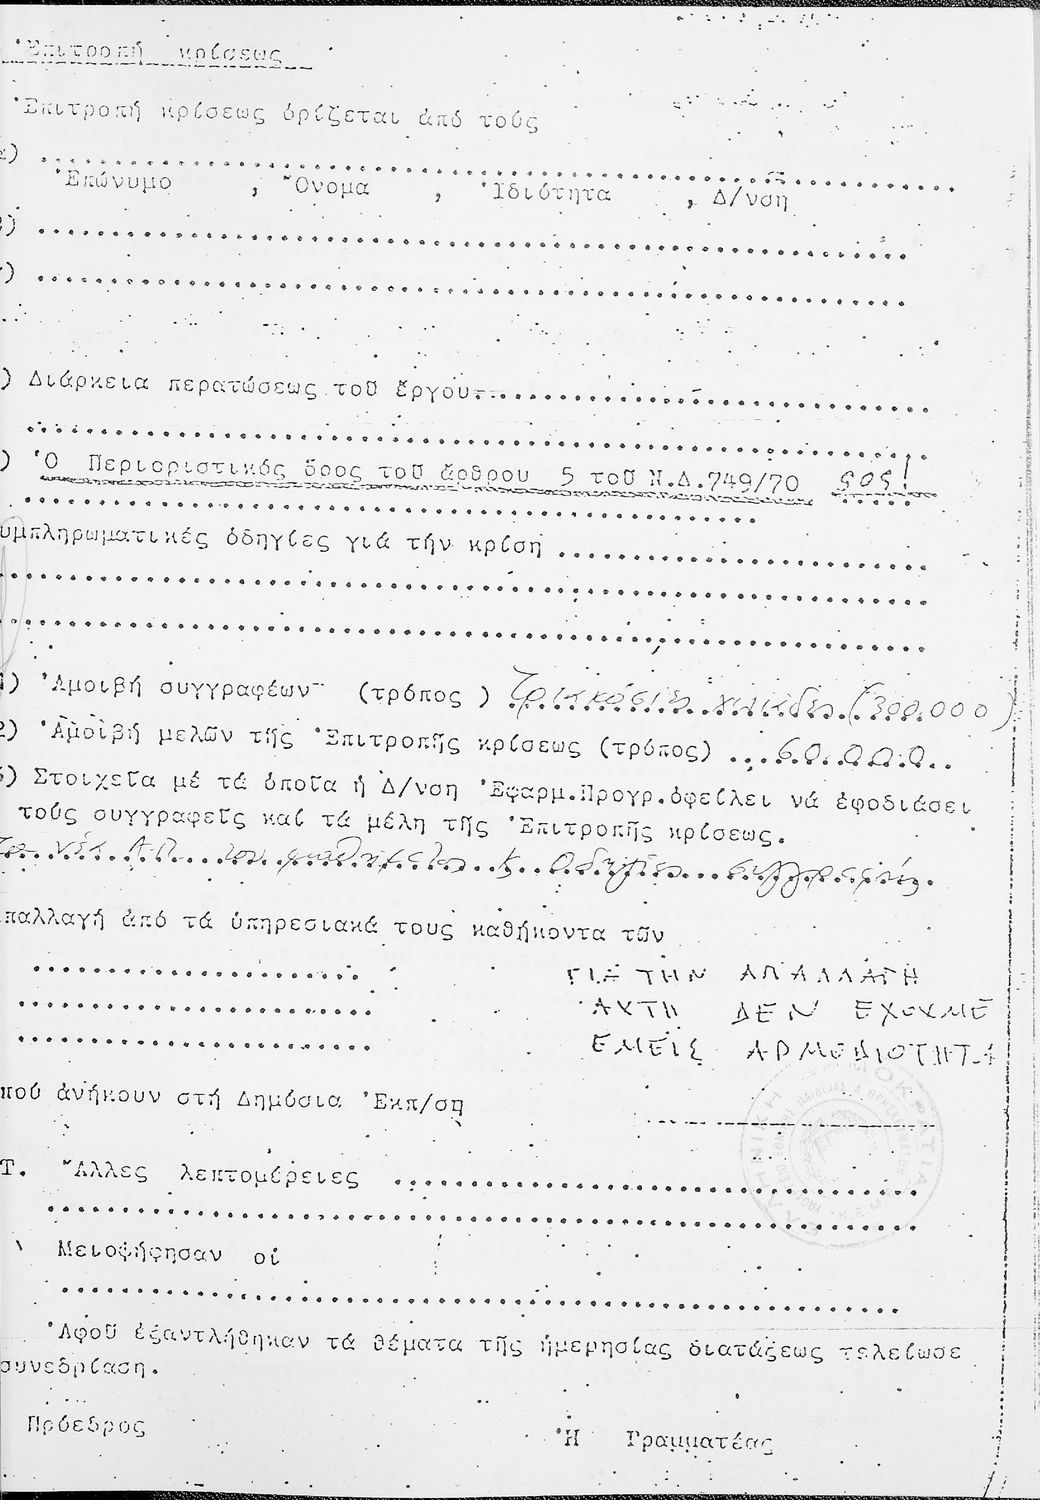 Ἐπιτροπή κρίσεως
Ἐπιτροπή κρίσεως ὁρίζεται ἀπό τούς
) ........................................
Ἐπώνυμο , Ὄνομα , Ἰδιότητα , Δ/νση
) ........................................
) ........................................
) Διάρκεια περατώσεως τοῦ ἔργου........................................
........................................
) Ὁ Περιοριστικός ὅρος τοῦ ἄρθρου 5 τοῦ Ν.Δ.749/70
........................................
υμπληρωματικές ὁδηγίες γιά τήν κρίση ........................................
........................................
........................................
) Ἀμοιβή συγγραφέων (τρόπος ) Τριακόσιες χιλιάδες (300.000)
2) Ἀμοιβή μελῶν τῆς Ἐπιτροπῆς κρίσεως (τρόπος) 60.000
) Στοιχεῖα μέ τά ὁποῖα ἡ Δ/νση Ἐφαρμ.Προγρ.ὀφείλει νά ἐφοδιάσει
τούς συγγραφεῖς καί τά μέλη τῆς Ἐπιτροπῆς κρίσεως.
παλλαγή ἀπό τά ὑπηρεσιακά τους καθήκοντα τῶν
........................ ΓΙΑ ΤΗΝ ΑΠΑΛΛΑΓΗ
........................ ΑΥΤΗ ΔΕΝ ΕΧΟΥΜΕ
........................ ΕΜΕΙΣ ΑΡΜΟΔΙΟΤΗΤΑ
πού ἀνήκουν στή Δημόσια Ἐκπ/ση
Τ. Ἄλλες λεπτομέρειες ........................................
........................................
Μειοψήφησαν οἱ
........................................
Ἀφοῦ ἐξαντλήθηκαν τά θέματα τῆς ἡμερησίας διατάξεως τελείωσε
συνεδρίαση.
Πρόεδρος Ἡ Γραμματέας